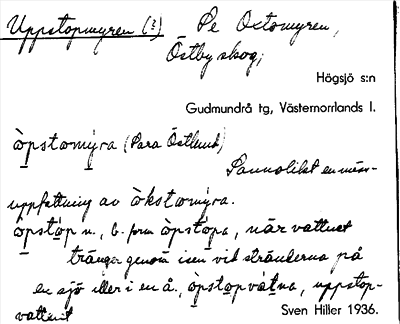 Uppstopmyren (?) Se Oxtomyren,
Östby skog;
Högsjö s:n
Gudmundrå tg, Västernorrlands l.
òpstomýra (Para Östlund)
Sannolikt en miss-
uppfattning av òkstomýra.
òpstóp n., b. form òpstópa, när vattnet
tränger genom isen vid stränderna på
en sjö eller i en å., òpstopvátna, uppstop-
vattnet
Sven Hiller 1936.